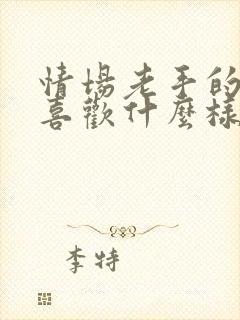 情場老手的
喜歡什麼樣
李特